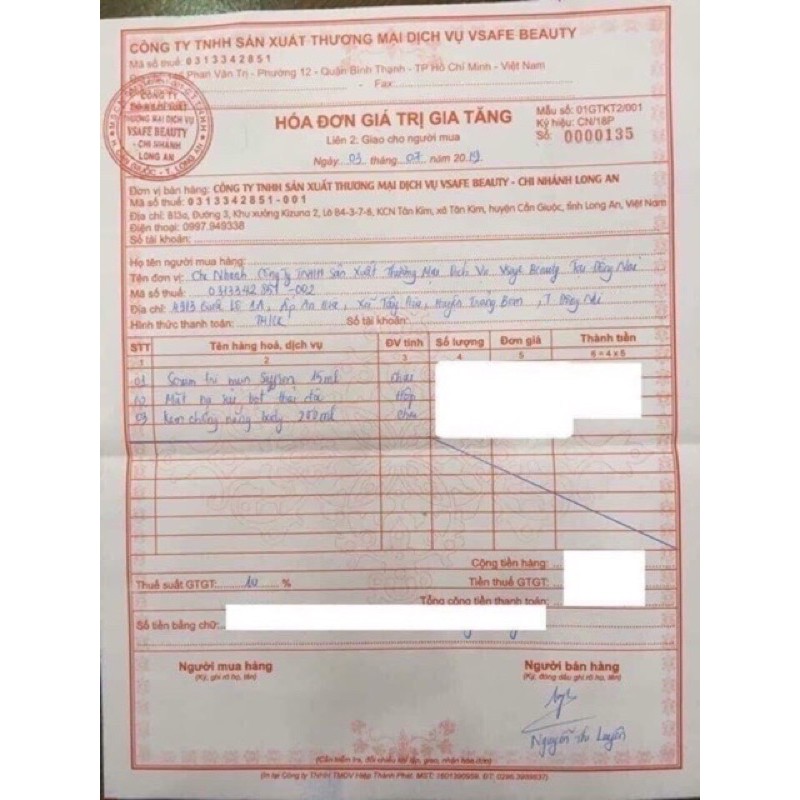 CÔNG TY TNHH SẢN XUẤT THƯƠNG MẠI DỊCH VỤ VSAFE BEAUTY
Mã số thuế: 0313342851
Phan Văn Trị - Phường 12 - Quận Bình Thạnh - TP Hồ Chí Minh - Việt Nam
- Fax:
CÔNG TY
THƯƠNG MẠI DỊCH VỤ
VSAFE BEAUTY
- CHI NHÁNH
LONG AN
HÓA ĐƠN GIÁ TRỊ GIA TĂNG
Liên 2: Giao cho người mua
Ngày 03 tháng 07 năm 2019
Mẫu số: 01GTKT2/001
Ký hiệu: CN/18P
Số: 0000135
Đơn vị bán hàng: CÔNG TY TNHH SẢN XUẤT THƯƠNG MẠI DỊCH VỤ VSAFE BEAUTY - CHI NHÁNH LONG AN
Mã số thuế: 0313342851-001
Địa chỉ: 813a, Đường 3, Khu xưởng Kizuna 2, Lô B4-3-7-8, KCN Tân Kim, xã Tân Kim, huyện Cần Giuộc, tỉnh Long An, Việt Nam
Điện thoại: 0997.949338
Số tài khoản:
Họ tên người mua hàng:
Tên đơn vị: Chi Nhánh Công Ty TNHH Sản Xuất Thương Mại Dịch Vụ Vsafe Beauty Tại Đồng Nai
Mã số thuế: 0313342851-002
Địa chỉ: Quốc Lộ 1A, Ấp An Hòa, Xã Tây Hòa, Huyện Trảng Bom, T Đồng Nai
Hình thức thanh toán: TM/CK Số tài khoản:
STT Tên hàng hoá, dịch vụ ĐV tính Số lượng Đơn giá Thành tiền
1 2 3 4 5 6=4x5
01 Serum trị mụn 15ml chai
02 Mặt nạ sủi bọt thải độc Hộp
03 Kem chống nắng body 200ml chai
Cộng tiền hàng:
Thuế suất GTGT: 10 % Tiền thuế GTGT:
Tổng cộng tiền thanh toán:
Số tiền bằng chữ:
Người mua hàng Người bán hàng
(Ký, ghi rõ họ, tên) (Ký, đóng dấu ghi rõ họ, tên)
Nguyễn Thị Luyến
(Cần kiểm tra, đối chiếu khi lập, giao, nhận hóa đơn)
(In tại Công ty TNHH TMDV Hiệp Thành Phát. MST: 1601390959. ĐT: 0296.3989837)